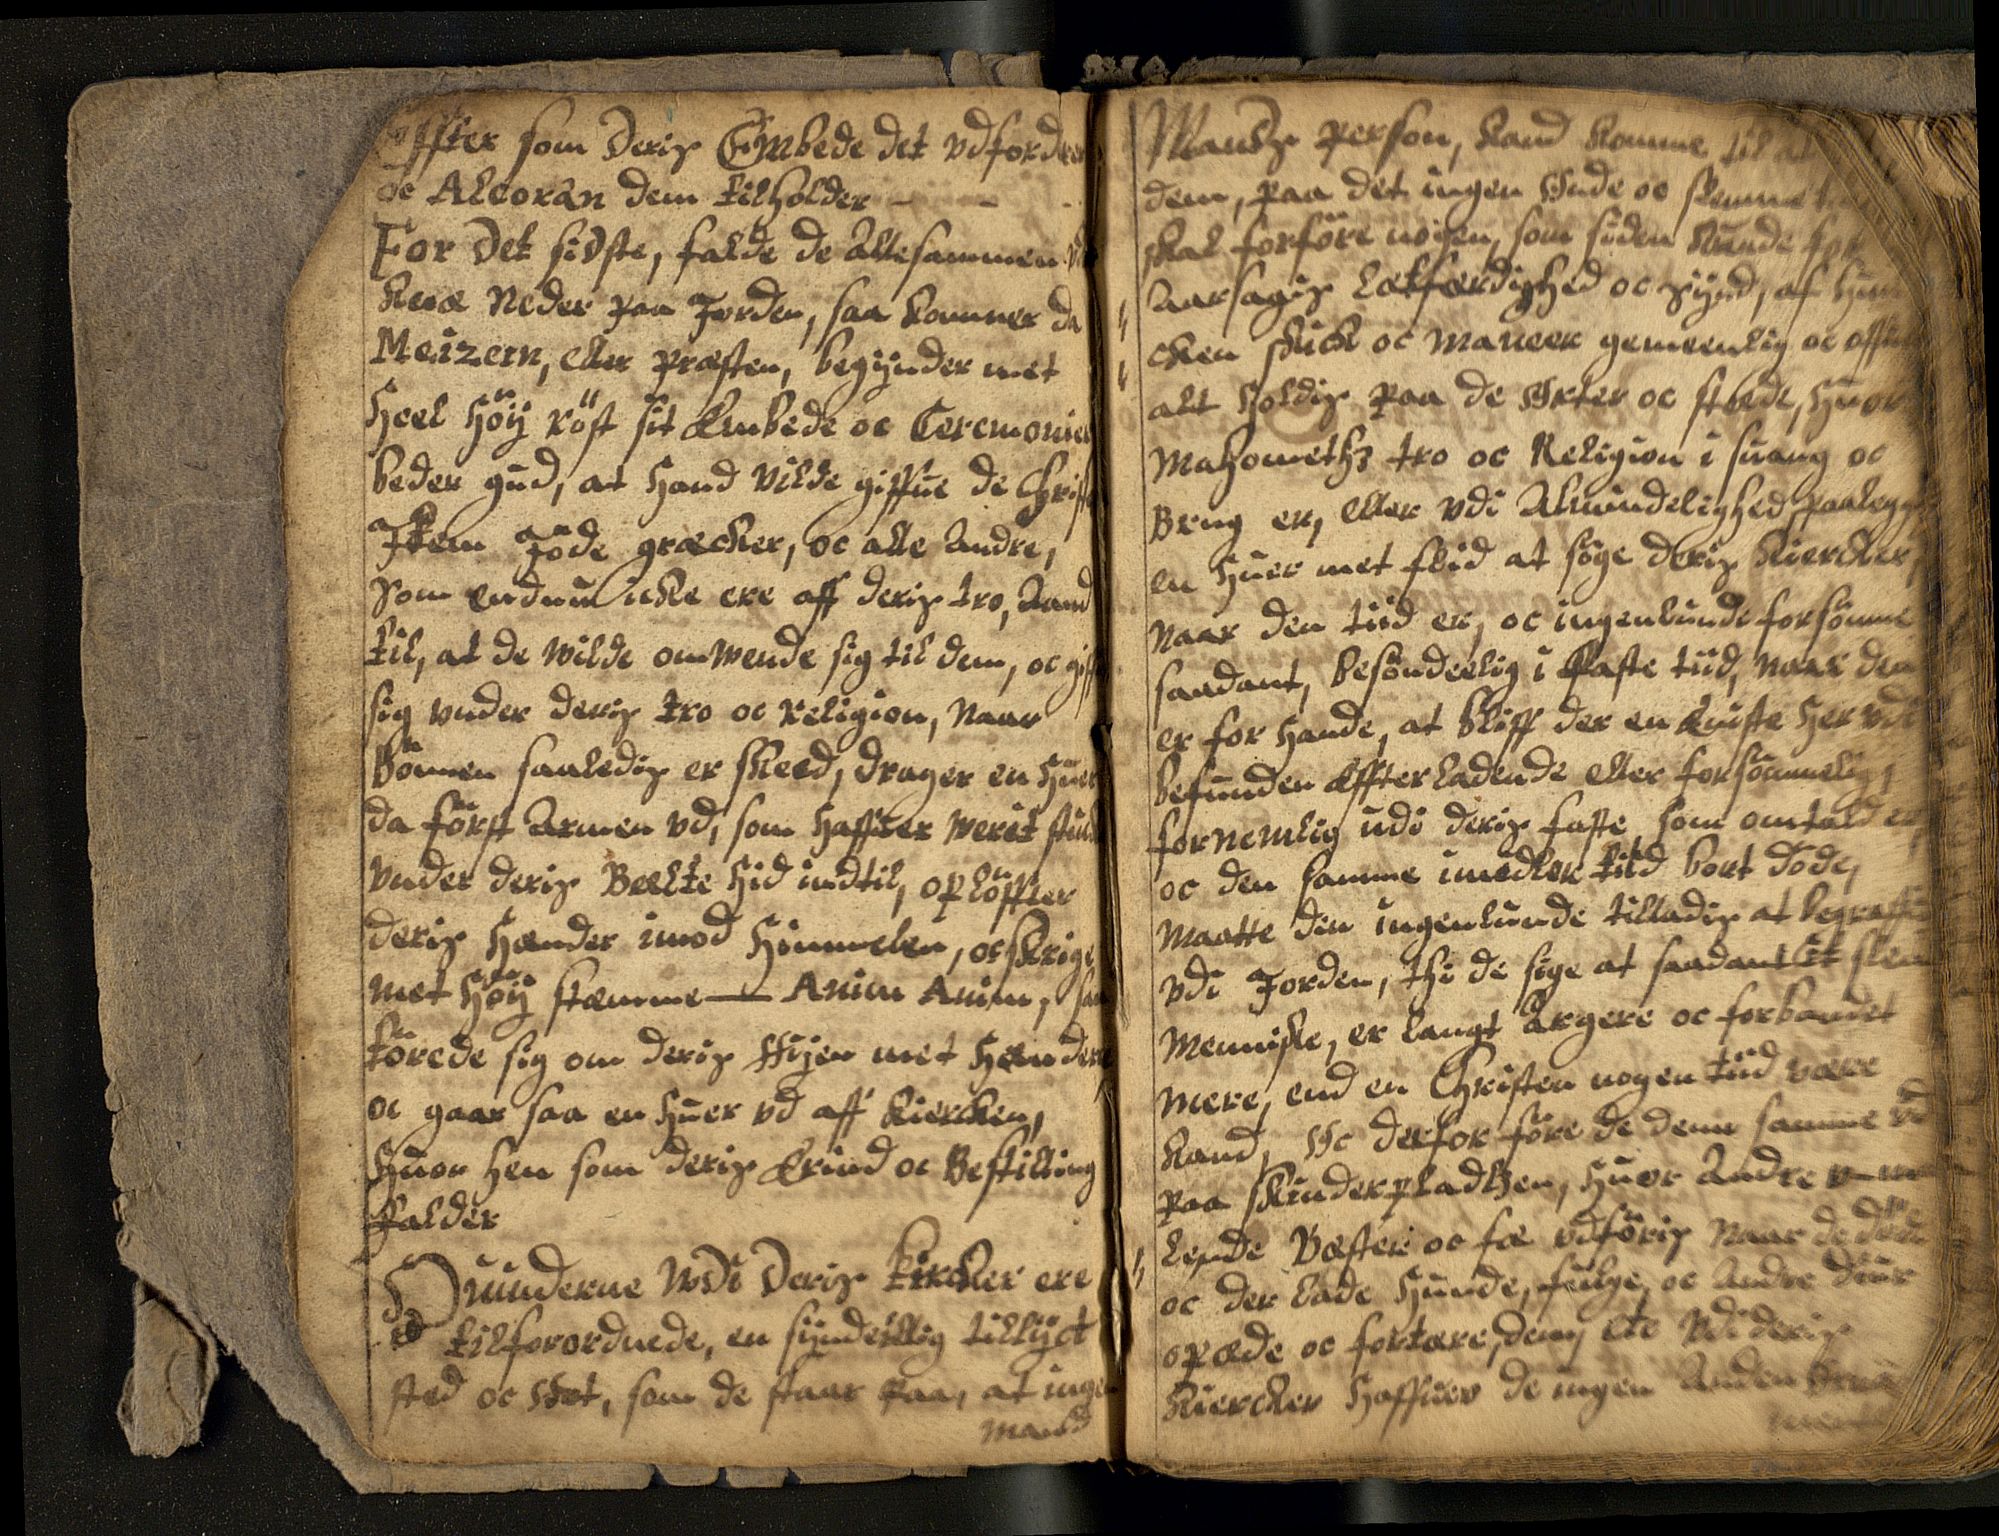 Effter som deris Embede det udfordrer
oc Alcoran dem tilholder — —
For det sidste, falde de allesammen
knæ neder paa Jorden, saa kommer da
Meizern, eller præsten, begÿnder met
heel höÿ röst sit Embede oc Ceremonier
beder gud, at hand vilde giffue de Christ
Item Jöde græcker, oc alle andre,
som endnu icke ere aff deris tro,
til, at de wilde omwende sig til dem, oc
sig under deris tro oc religion, naar
Bönnen saaledis er skeed, drager en huer
da först armen ud, som haffuer werit
under deris Bælte hid indtil, oplöffter
deris hænder imod himmelen, oc skrige
met höÿ stæmme — Anim Anim, saa
törede sig om deris Öÿen met hænderne
oc gaar saa en huer ud aff kiercken,
huor hen som deris Erind oc Bestilling
falder
Quinderne Udi deris kircker ere
tilforordnede, en sÿnderlig tillÿct
sted oc Ort, som de staar paa, at ingen
mands
Mands person, kand komme til at
dem, paa det ingen Onde oc slemme
skal forföre nogen, som siden kunde
aarsagis letfærdighed oc sÿnd, af
cken skick oc maneer gemeenlig oc
alt holdis paa de Orter oc stæde, huor
Mahomethz tro oc Religion i suang oc
Brug er, eller udi almindelighed, paalegge
en huer met flid at söge deris kiercker,
naar den tiid er, oc ingenlunde forsömme
saadant, besönderlig i faste tiid, naar den
er for hande, at bliff der en Christe her udi
befunden effterladende eller forsömmelig,
fornemlig udi deris faste, som omtald er,
oc den samme imedler tiid bort döde,
maatte den ingenlunde tilladis at begraffis
udi Jorden, thi de sige at saadant it
Menniske, er langt ærgere oc forbandet
mere, end en Christen nogen tiid være
kand, Oc derfor före de denn samme ud
paa skinderpladtzen, huor andre
Bæster oc fæ udföris naar de döde
oc der lade hunde, fulge, oc andre diur
opæde oc fortære, denn ete Udi deris
kiercker haffuer de ingen anden